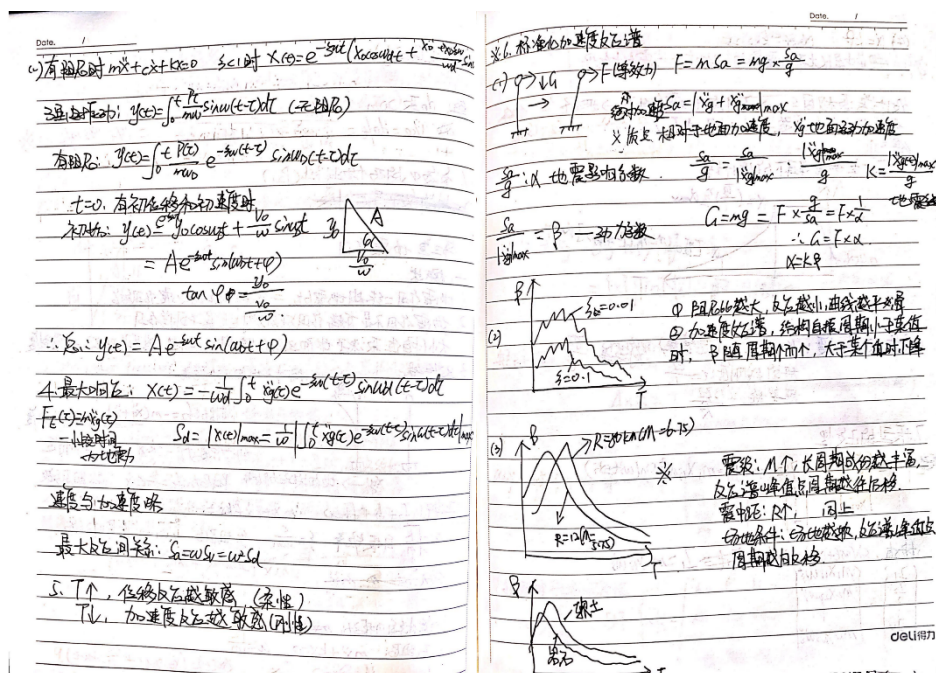 Date. /
(2)有阻尼时 mẍ+cẋ+kx=0 ξ<1时 x(t)=e^{-ξωt}(x₀cosωdt+
强迫振动: y(t)=∫₀ᵗ sinω(t-τ)dτ (无阻尼)
有阻尼: y(t)=∫₀ᵗ P(τ)/mω₀ e^{-ξω(t-τ)} sinω₀(t-τ)dτ
t=0. 有初位移和初速度时
y(t)= y₀cos + v₀/ω sin
= Ae^{-ξωt}sin(ω₀t+φ)
tanφ= y₀/(v₀/ω)
y₀ A α v₀/ω
∴ 总: y(t)=Ae^{-ξωt}sin(ω₀t+φ)
4.最大响应: x(t)=-1/ωd ∫₀ᵗ ẍg(τ)e^{-ξω(t-τ)}sinωd(t-τ)dτ
一小段时间
Sd=|x(t)|max=1/ω|∫₀ᵗ ẍg(τ)e^{-ξω(t-τ)}sinω(t-τ)dτ|max
速度与加速度略
最大反应间关系: Sa=ωSv=ω²Sd
5. T↑, 位移反应越敏感 (柔性)
T↓, 加速度反应越敏感(刚性)
Date. /
※6.标准化加速度反应谱
(1) ↓G → F(等效力) F=mSa=mg×Sa/g
绝对加速度Sa=|ẍg+ẍ|max
x质点相对于地面加速度, ẍg地面运动加速度
Sa/g:α 地震影响系数. Sa/g=Sa/|ẍg|max·|ẍg|max/g K=|ẍg(t)|max/g
Sa/|ẍg|max=β —动力系数 G=mg=F×g/Sa=F×1/α
∴G=F×α
α=Kβ
(2) β ξ=0.01 ξ=0.1 T
①阻尼比越大, 反应越小,曲线越平滑
②加速度反应谱, 结构自振周期小于某值
时, β随周期↑而↑, 大于某个值时下降
(3) β R=80km(M=6.75)
R=12(M=5.75) T
※ 震级: M↑, 长周期成份越丰富,
反应谱峰值点周期越往后移
震中距: R↑, 同上
场地条件: 场地越软,反应谱峰值点
周期越向后移
β 软土
岩石
deli得力